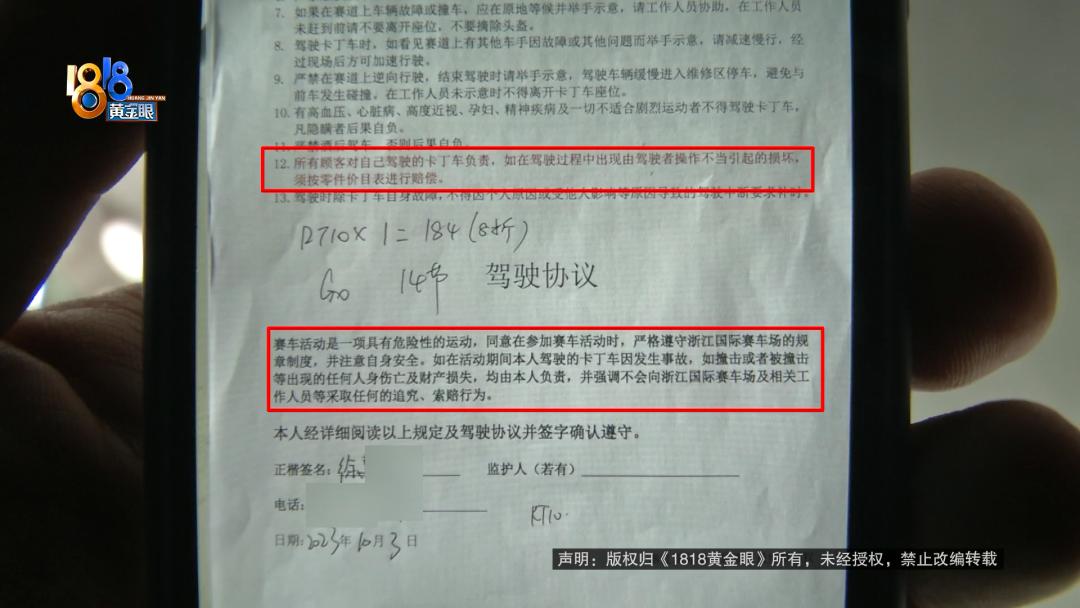 1818
HUANG JIN YAN
黄金眼
7. 如果在赛道上车辆故障或撞车，应在原地等候并举手示意，请工作人员协助，在工作人员
未赶到前请不要离开座位，不要摘除头盔。
8. 驾驶卡丁车时，如看见赛道上有其他车手因故障或其他问题而举手示意，请减速慢行，经
过现场后方可加速行驶。
9. 严禁在赛道上逆向行驶，结束驾驶时请举手示意，驾驶车辆缓慢进入维修区停车，避免与
前车发生碰撞，在工作人员未示意时不得离开卡丁车座位。
10. 有高血压、心脏病、高度近视、孕妇、精神疾病及一切不适合剧烈运动者不得驾驶卡丁车，
凡隐瞒者后果自负。
11. 严禁酒后驾车，否则后果自负。
12. 所有顾客对自己驾驶的卡丁车负责，如在驾驶过程中出现由驾驶者操作不当引起的损坏，
须按零件价目表进行赔偿。
13. 驾驶时除卡丁车自身故障，不得因个人原因或受他人影响等原因导致的驾驶中断要求补时。
RT10X 1= 184 (8折)
Go 14节 驾驶协议
赛车活动是一项具有危险性的运动，同意在参加赛车活动时，严格遵守浙江国际赛车场的规
章制度，并注意自身安全。如在活动期间本人驾驶的卡丁车因发生事故，如撞击或者被撞击
等出现的任何人身伤亡及财产损失，均由本人负责，并强调不会向浙江国际赛车场及相关工
作人员等采取任何的追究、索赔行为。
本人经详细阅读以上规定及驾驶协议并签字确认遵守。
正楷签名：徐 监护人（若有）
电话：
RT10.
日期：2023年10月3日
声明：版权归《1818黄金眼》所有，未经授权，禁止改编转载